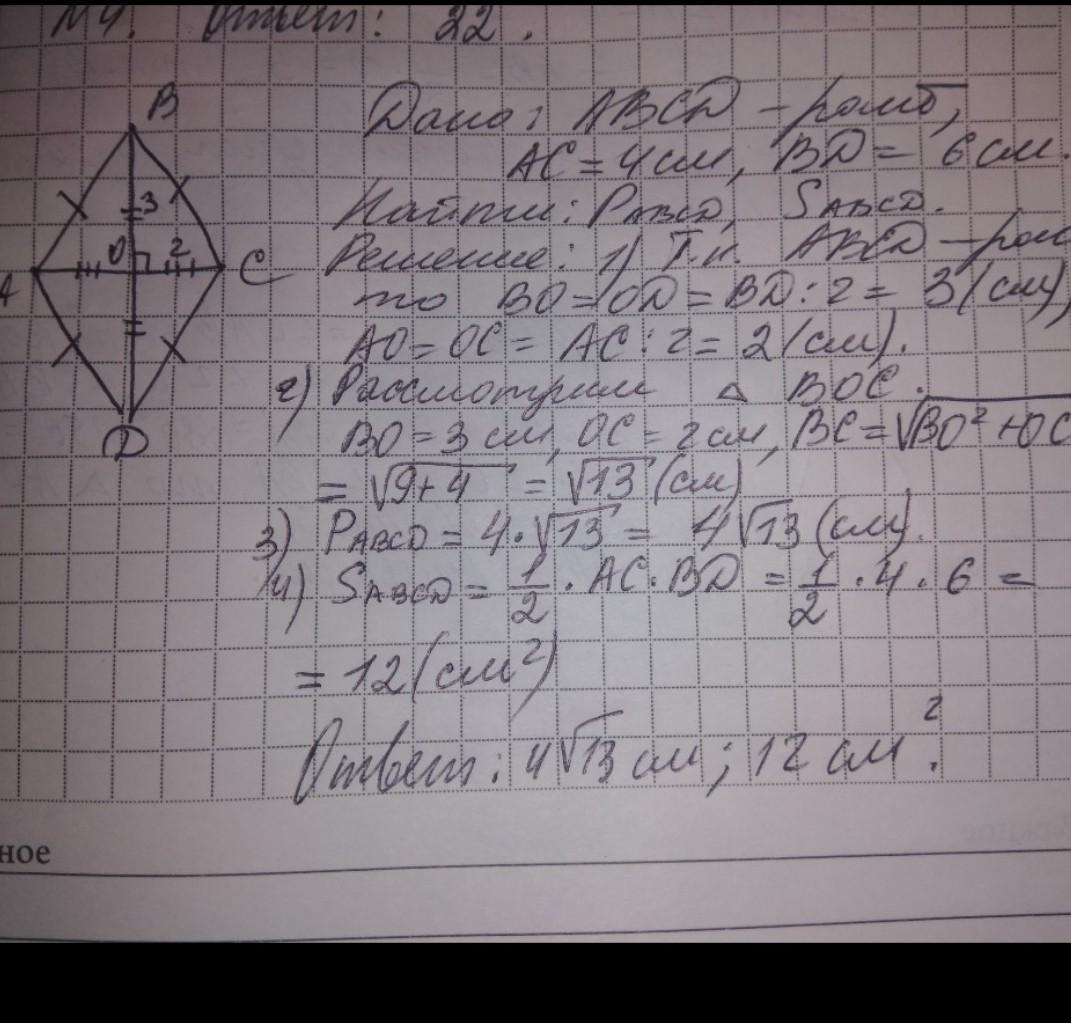 №4. Ответ: 22.
Дано: ABCD – ромб,
AC = 4 см, BD = 6 см.
Найти: PABCD, SABCD.
Решение: 1) Т.к. ABCD – ром
то BO = OD = BD : 2 = 3 (см),
AO = OC = AC : 2 = 2 (см).
2) Рассмотрим △ BOC.
BO = 3 см, OC = 2 см, BC = √BO² + OC
= √9+4 = √13 (см)
3) PABCD = 4 · √13 = 4√13 (см).
4) SABCD = 1/2 · AC · BD = 1/2 · 4 · 6 =
= 12 (см²)
Ответ: 4√13 см; 12 см².
B
3
O
2
A
C
D
ное